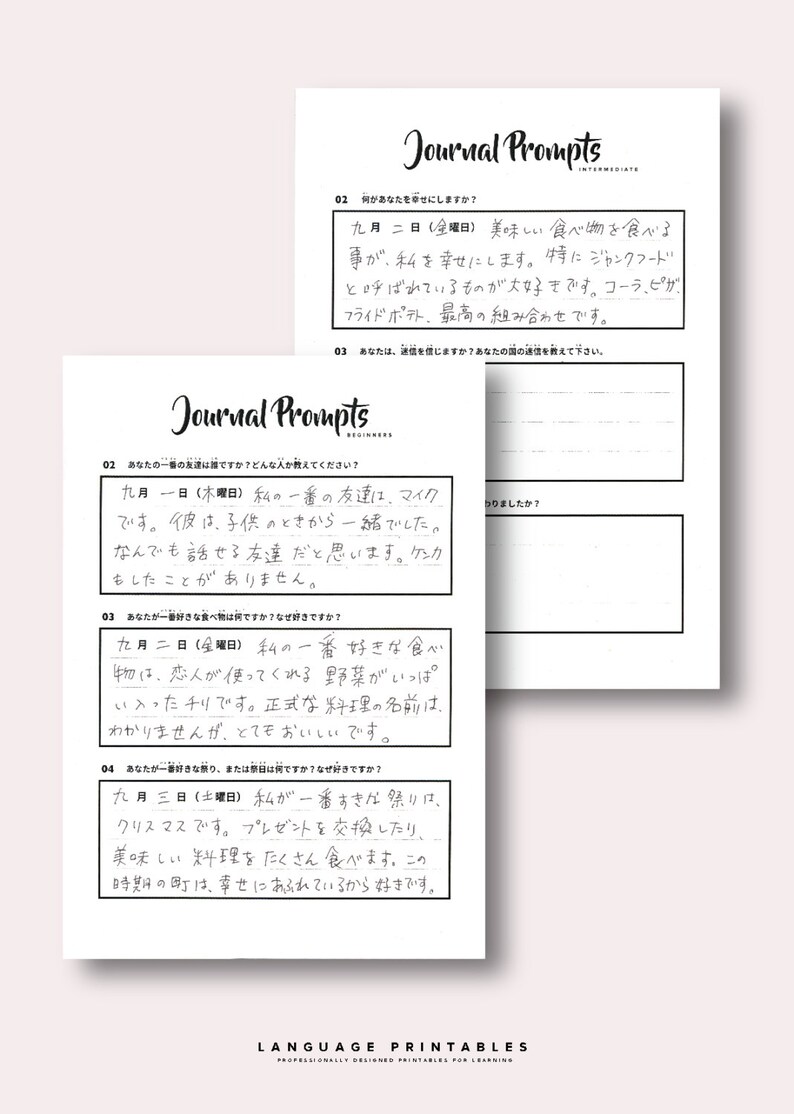 Journal Prompts
INTERMEDIATE
02 何があなたを幸せにしますか？
九月 二日（金曜日） 美味しい食べ物を食べる
事が、私を幸せにします。特にジャンクフード
と呼ばれているものが大好きです。コーラ、ピザ、
フライドポテト、最高の組み合わせです。
03 あなたは、迷信を信じますか？あなたの国の迷信を教えて下さい。
わりましたか？
Journal Prompts
BEGINNERS
02 あなたの一番の友達は誰ですか？どんな人か教えてください？
九月 一日（木曜日） 私の一番の友達は、マイク
です。彼は、子供のときから一緒でした。
なんでも話せる友達だと思います。ケンカ
もしたことがありません。
03 あなたが一番好きな食べ物は何ですか？なぜ好きですか？
九月 二日（金曜日） 私の一番 好きな食べ
物は、恋人が使ってくれる野菜がいっぱ
い入ったチリです。正式な料理の名前は、
わかりませんが、とてもおいしいです。
04 あなたが一番好きな祭り、または祭日は何ですか？なぜ好きですか？
九月 三日（土曜日） 私が一番すきな祭りは、
クリスマスです。プレゼントを交換したり、
美味しい料理をたくさん食べます。この
時期の町は、幸せにあふれているから好きです。
LANGUAGE PRINTABLES
PROFESSIONALLY DESIGNED PRINTABLES FOR LEARNING